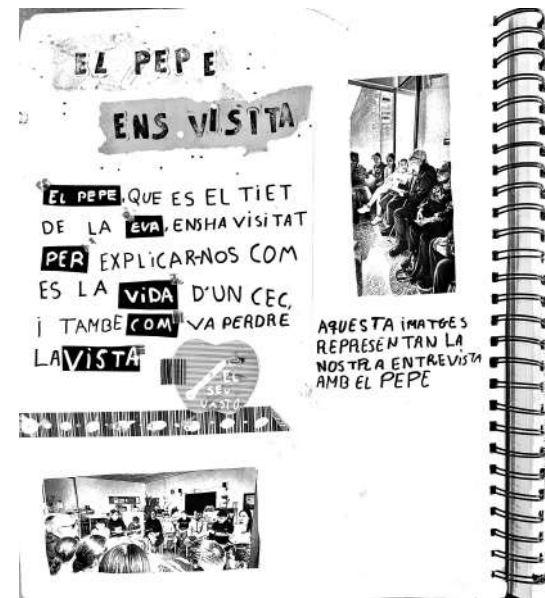 EL PEPE
ENS VISITA
EL PEPE, QUE ES EL TIET
DE LA EVA, ENSHA VISITAT
PER EXPLICAR-NOS COM
ES LA VIDA D'UN CEC,
I TAMBE COM VA PERDRE
LA VISTA
EL
SEU
BASTÓ
AQUESTA IMATGES
REPRESENTAN LA
NOSTRA ENTREVISTA
AMB EL PEPE